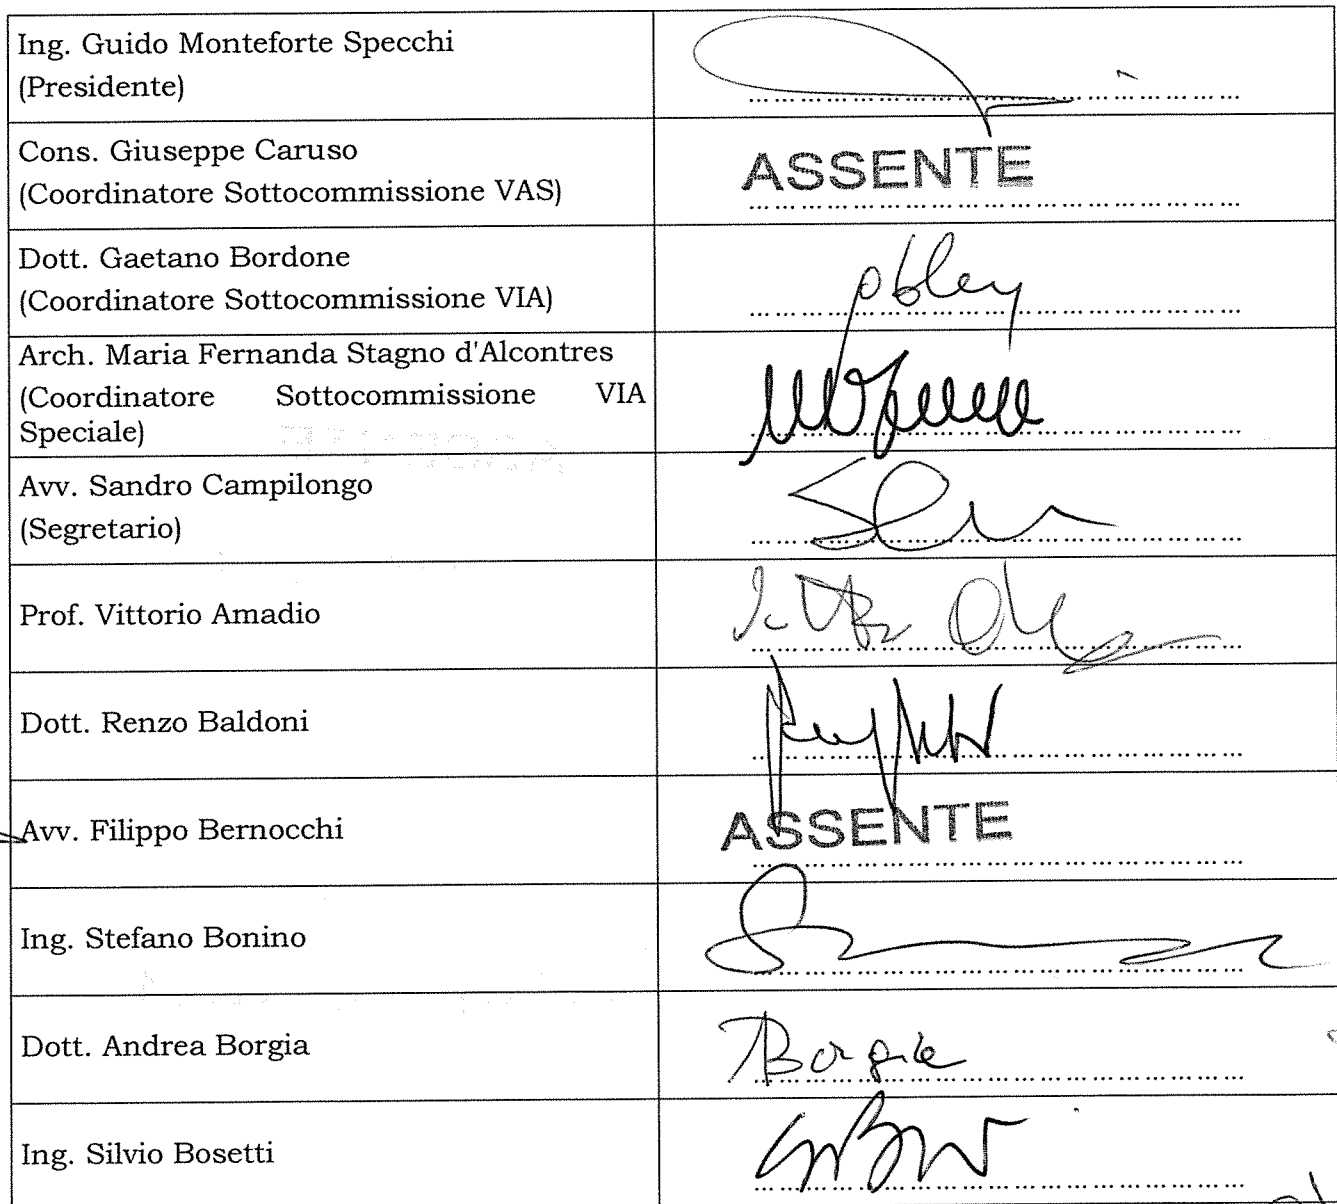 Ing. Guido Monteforte Specchi
(Presidente)
Cons. Giuseppe Caruso
(Coordinatore Sottocommissione VAS)
ASSENTE
Dott. Gaetano Bordone
(Coordinatore Sottocommissione VIA)
Arch. Maria Fernanda Stagno d'Alcontres
(Coordinatore Sottocommissione VIA
Speciale)
Avv. Sandro Campilongo
(Segretario)
Prof. Vittorio Amadio
Dott. Renzo Baldoni
Avv. Filippo Bernocchi
ASSENTE
Ing. Stefano Bonino
Dott. Andrea Borgia
Borgia
Ing. Silvio Bosetti